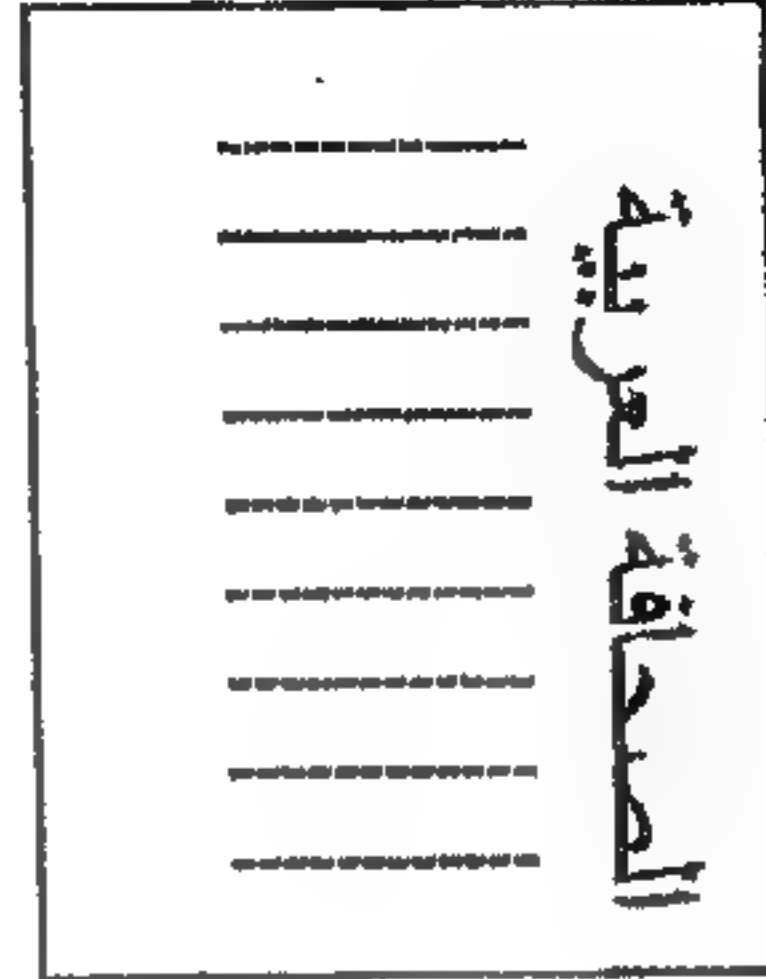 الصحافة العربية